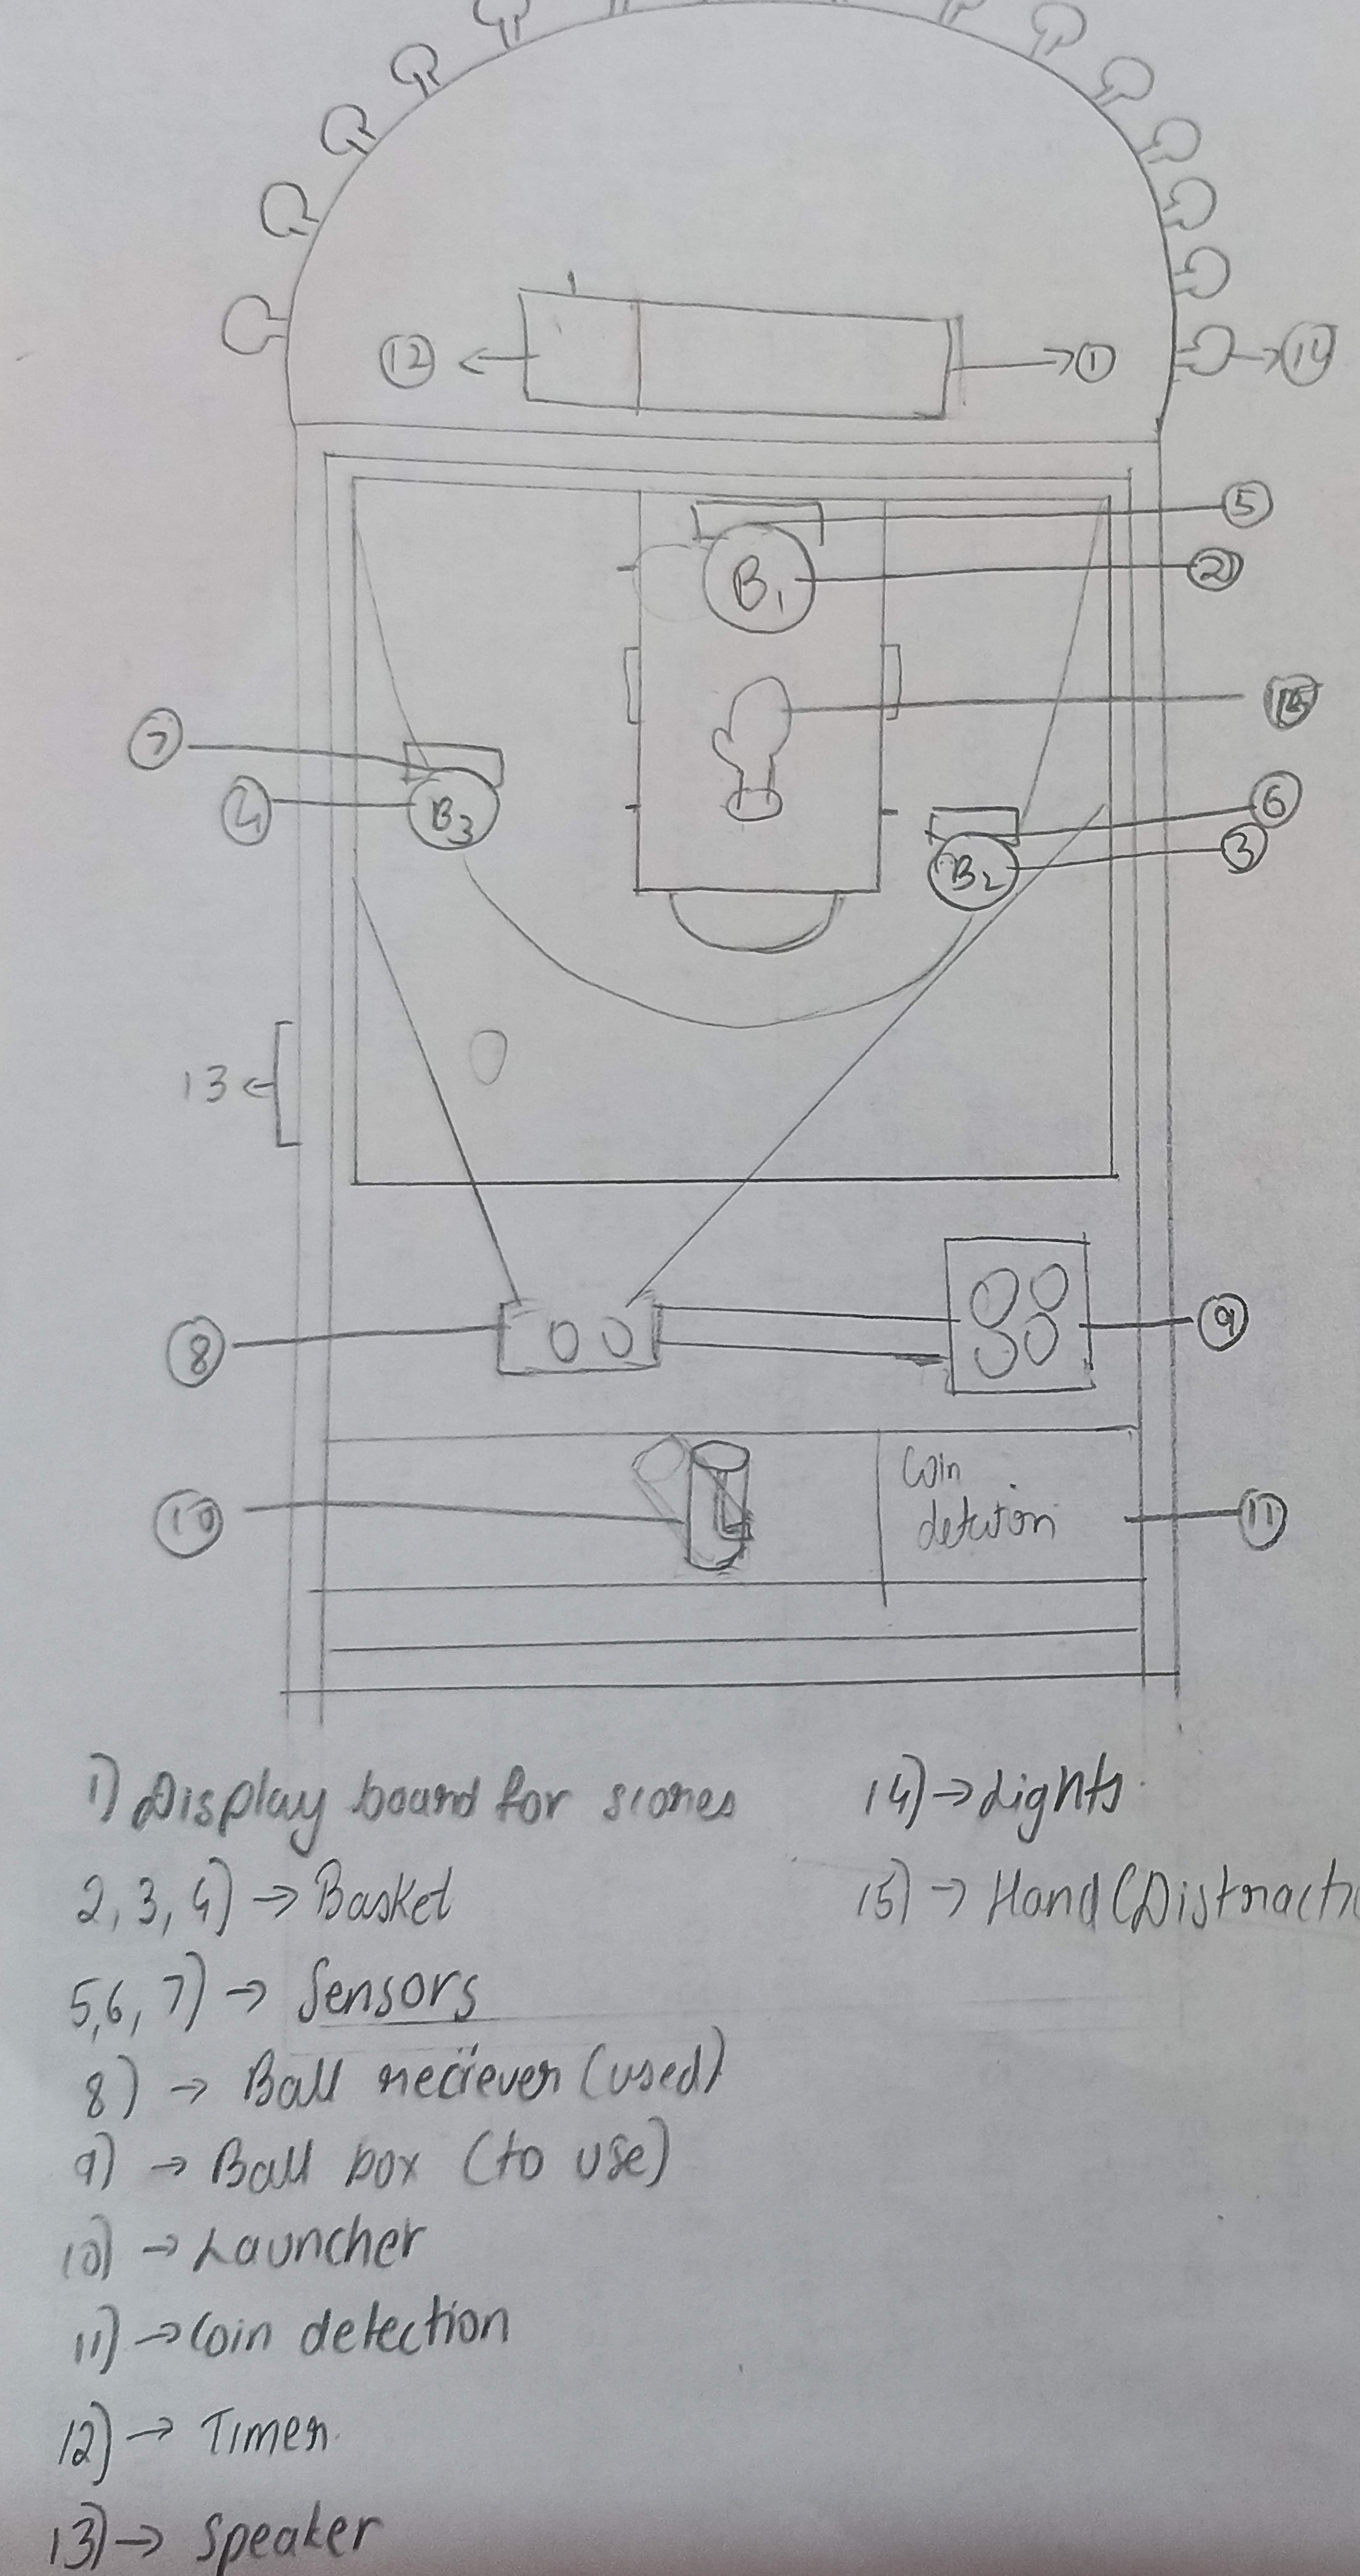 12
1
14
5
B1
2
15
7
4
B3
6
B2
3
13
8
9
10
Coin
detection
11
1) Display board for scores
2, 3, 4) → Basket
5,6, 7) → Sensors
8) → Ball reciever (used)
9) → Ball box (to use)
10) → Launcher
11) → Coin detection
12) → Timer
13) → Speaker
14) → Lights
15) → Hand (Distracti